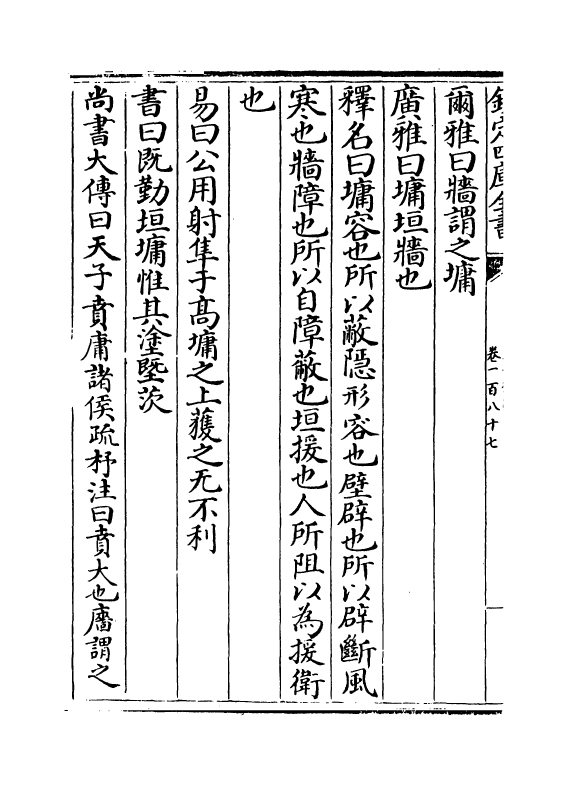 欽定四庫全書
卷一百八十七
爾雅曰牆謂之墉
廣雅曰墉垣牆也
釋名曰墉容也所以蔽隱形容也壁辟也所以辟斷風
寒也牆障也所以自障蔽也垣援也人所阻以為援衛
也
易曰公用射隼于髙墉之上獲之无不利
書曰既勤垣墉惟其塗塈茨
尚書大傳曰天子賁庸諸侯疏杼注曰賁大也廧謂之